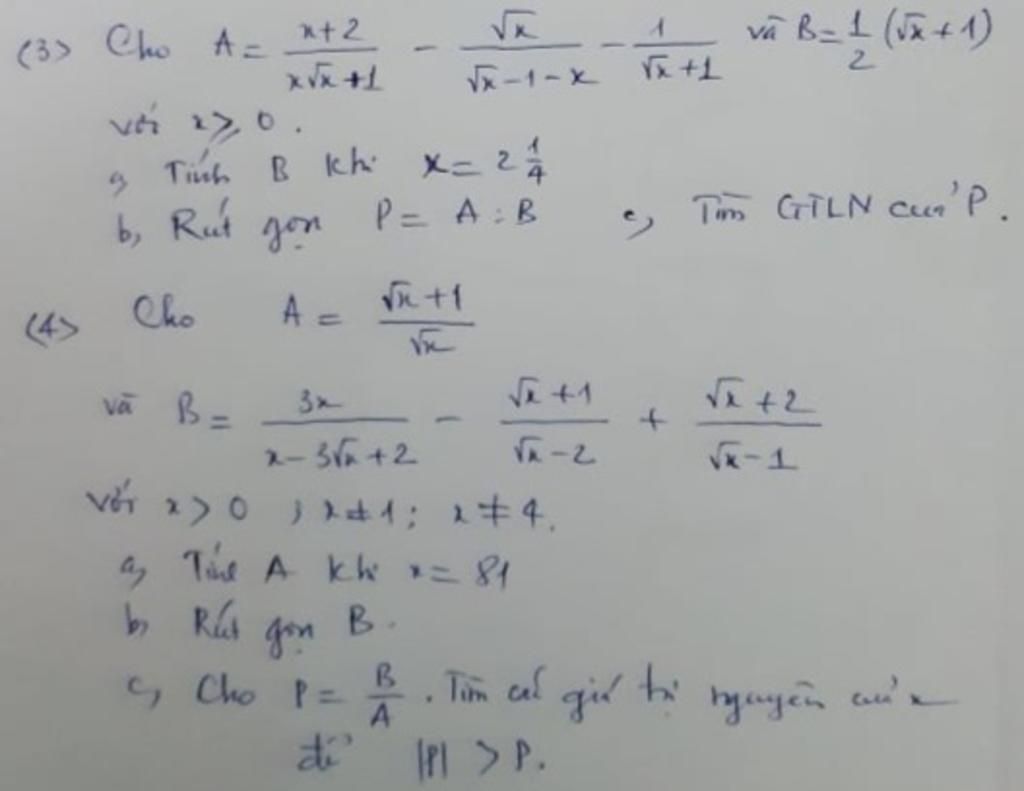 (3) Cho A = \frac{x+2}{x\sqrt{x}+1} - \frac{\sqrt{x}}{\sqrt{x}-1-x} - \frac{1}{\sqrt{x}+1} và B = \frac{1}{2}(\sqrt{x}+1)
với x ≥ 0.
a, Tính B khi x = 2\frac{1}{4}
b, Rút gọn P = A : B c, Tìm GTLN của P.
(4) Cho A = \frac{\sqrt{x}+1}{\sqrt{x}}
và B = \frac{3x}{x-3\sqrt{x}+2} - \frac{\sqrt{x}+1}{\sqrt{x}-2} + \frac{\sqrt{x}+2}{\sqrt{x}-1}
với x > 0 ; x ≠ 1 ; x ≠ 4.
a, Tính A khi x = 81
b, Rút gọn B.
c, Cho P = \frac{B}{A}. Tìm các giá trị nguyên của x
để |P| > P.